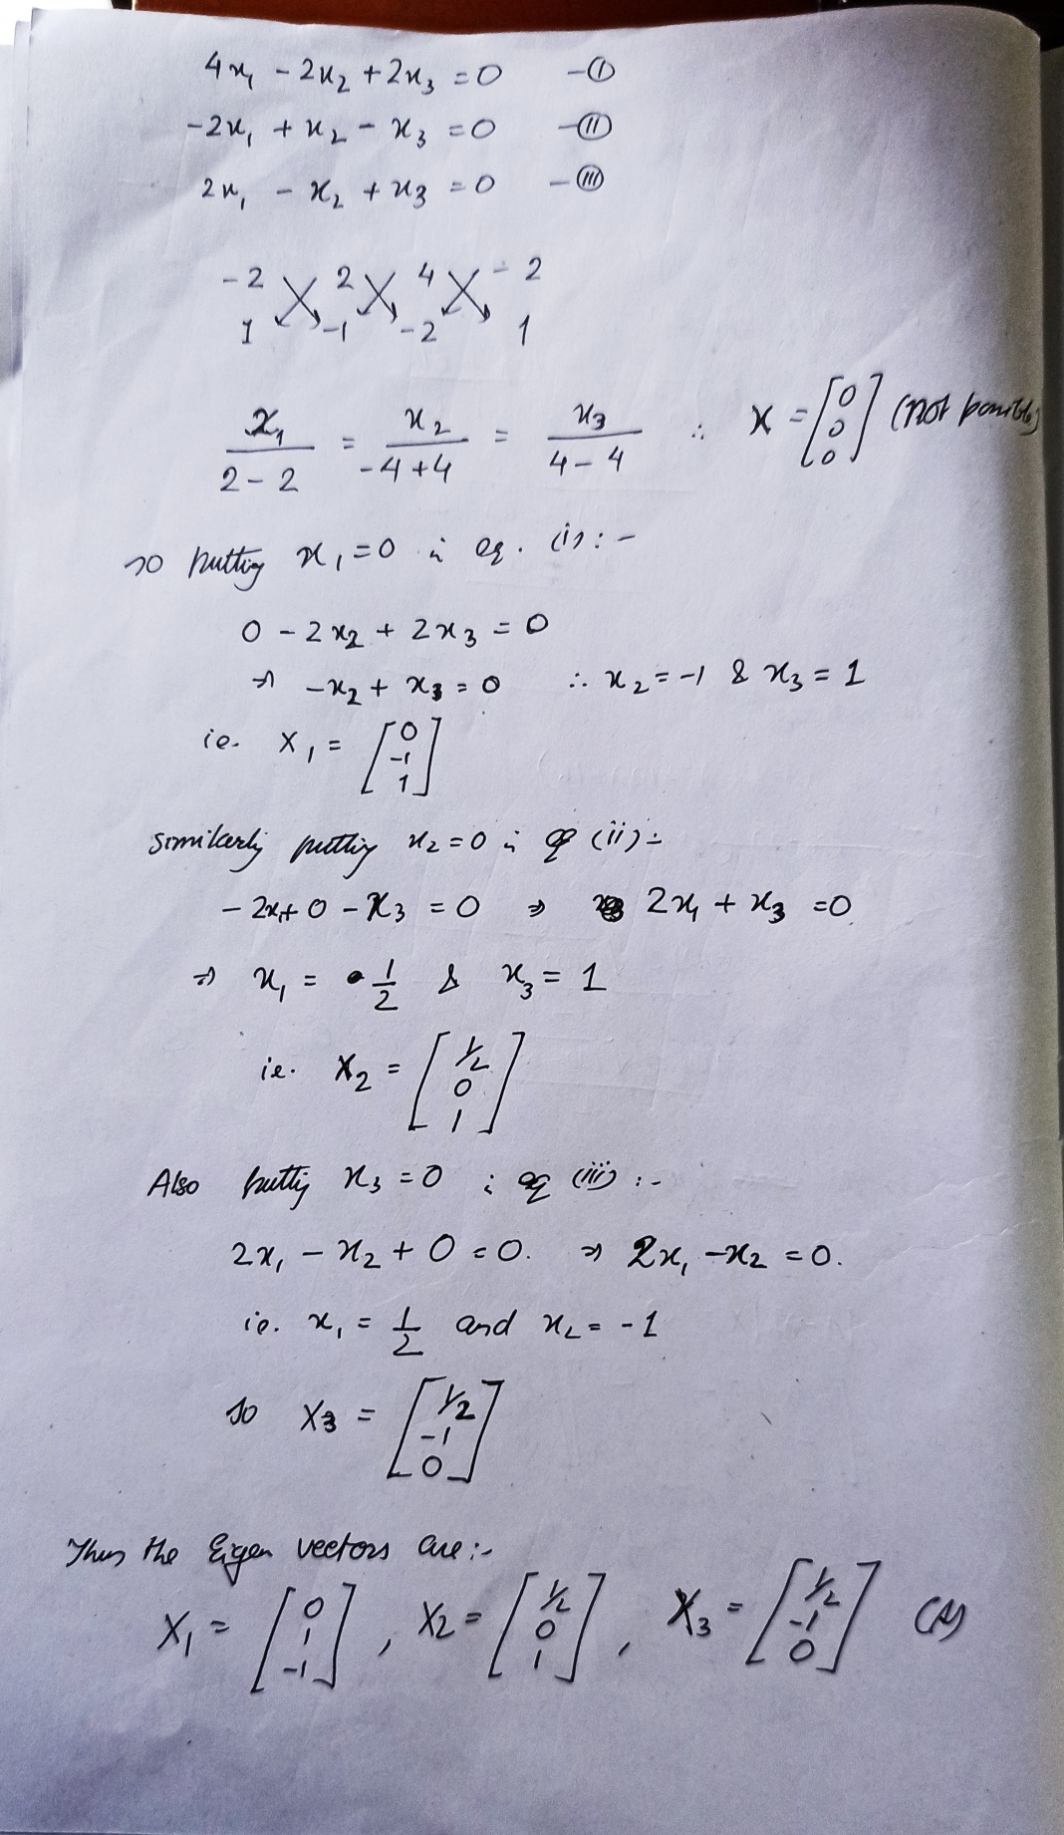 4x₁ - 2x₂ + 2x₃ = 0 -(I)
-2x₁ + x₂ - x₃ = 0 -(II)
2x₁ - x₂ + x₃ = 0 -(III)
-2 2 4 -2
1 -1 -2 1
x₁/(2-2) = x₂/(-4+4) = x₃/(4-4) ∴ X = [0 0 0] (not possible)
so putting x₁=0 in eq. (i):-
0 - 2x₂ + 2x₃ = 0
⇒ -x₂ + x₃ = 0 ∴ x₂ = -1 & x₃ = 1
ie. X₁ = [0 -1 1]
Similarly putting x₂=0 in eq (ii):-
-2x₁+ 0 - x₃ = 0 ⇒ 2x₁ + x₃ = 0
⇒ x₁ = 1/2 & x₃ = 1
ie. X₂ = [1/2 0 1]
Also putting x₃ = 0 in eq (iii) :-
2x₁ - x₂ + 0 = 0. ⇒ 2x₁ - x₂ = 0.
ie. x₁ = 1/2 and x₂ = -1
so X₃ = [1/2 -1 0]
Thus the Eigen vectors are:-
X₁ = [0 1 -1], X₂ = [1/2 0 1], X₃ = [1/2 -1 0]